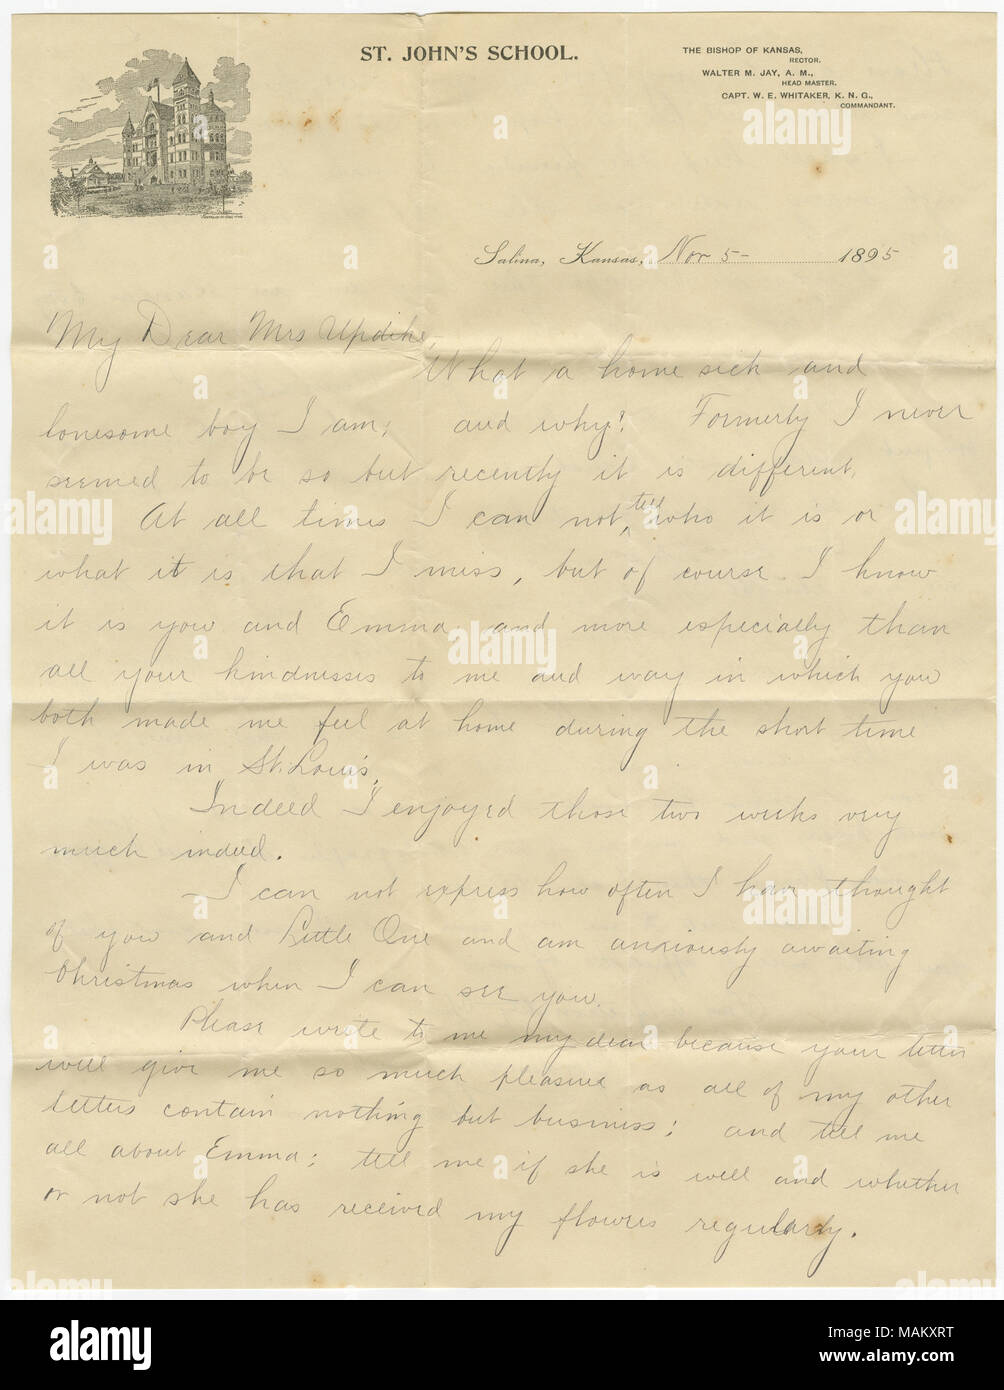 ST. JOHN'S SCHOOL.
THE BISHOP OF KANSAS,
RECTOR.
WALTER M. JAY, A. M.,
HEAD MASTER.
CAPT. W. E. WHITAKER, K. N. G.,
COMMANDANT.
Salina, Kansas, Nov 5- 1895
My Dear Mrs Updike,
What a home sick and
lonesome boy I am; and why? Formerly I never
seemed to be so but recently it is different.
At all times I can not tell who it is or
what it is that I miss, but of course I know
it is you and Emma and more especially than
all your kindnesses to me and way in which you
both made me feel at home during the short time
I was in St. Louis.
Indeed I enjoyed those two weeks very
much indeed.
I can not express how often I have thought
of you and Little One and am anxiously awaiting
Christmas when I can see you.
Please write to me my dear because your letters
will give me so much pleasure as all of my other
letters contain nothing but business; and tell me
all about Emma; tell me if she is well and whether
or not she has received my flowers regularly.
alamy
Image ID: MAKXRT
www.alamy.com